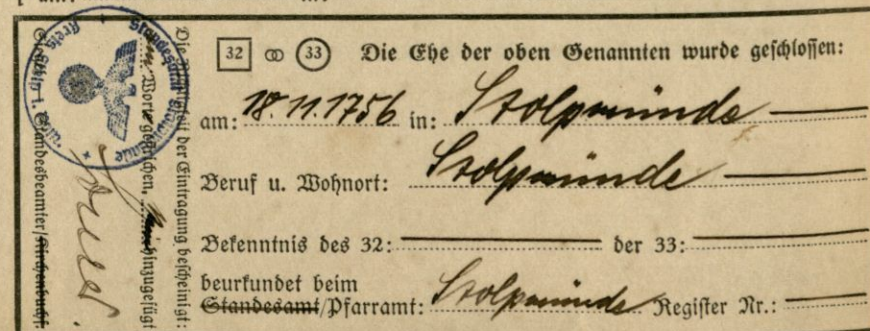 32 ∞ 33 Die Ehe der oben Genannten wurde geschlossen:
am: 18.11.1756 in: Stolpmünde
Beruf u. Wohnort: Stolpmünde
Bekenntnis des 32: der 33:
beurkundet beim
Standesamt/Pfarramt: Stolpmünde Register Nr.:
Die Richtigkeit der Eintragung bescheinigt:
Worte gestrichen, hinzugefügt
Standesbeamter/Kirchenbuchf.